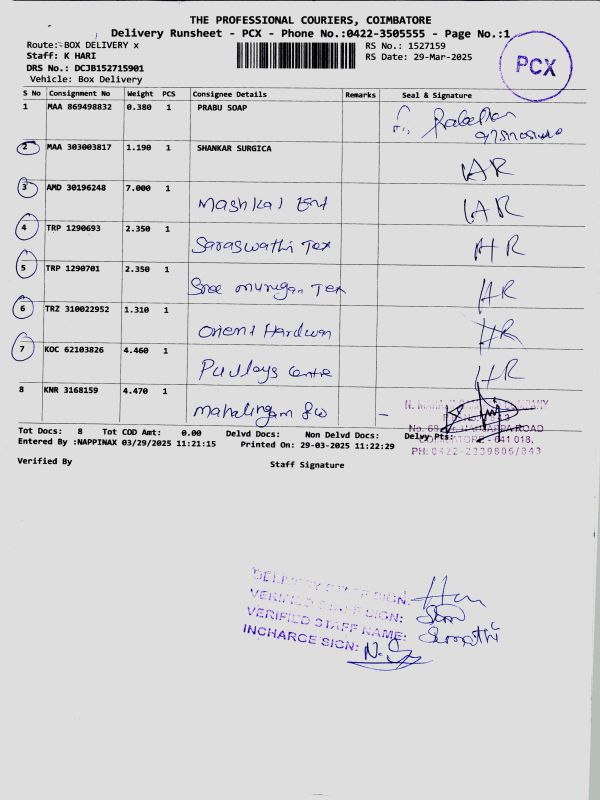 THE PROFESSIONAL COURIERS, COIMBATORE
Delivery Runsheet - PCX - Phone No.:0422-3505555 - Page No.:1
Route: BOX DELIVERY x
Staff: K HARI
DRS No.: DCJB152715901
Vehicle: Box Delivery
RS No.: 1527159
RS Date: 29-Mar-2025
PCX
S No Consignment No Weight PCS Consignee Details Remarks Seal & Signature
1 MAA 869498832 0.380 1 PRABU SOAP
2 MAA 303003817 1.190 1 SHANKAR SURGICA HR
3 AMD 30196248 7.000 1 Mashkal Ent HR
4 TRP 1290693 2.350 1 Saraswathi Tex HR
5 TRP 1290701 2.350 1 Sree murugan Tex HR
6 TRZ 310022952 1.310 1 Orient Hardwar HR
7 KOC 62103826 4.460 1 Centre HR
8 KNR 3168159 4.470 1 Mahalingam
COIMBATORE - 641 018.
PH: 0422-2239806/843
Tot Docs: 8 Tot COD Amt: 0.00 Delvd Docs: Non Delvd Docs: Delvy Pts:
Entered By :NAPPINAX 03/29/2025 11:21:15 Printed On: 29-03-2025 11:22:29
Verified By Staff Signature
DELIVERY STAFF SIGN:
VERIFIED STAFF SIGN:
VERIFIED STAFF NAME: Sumathi
INCHARGE SIGN: